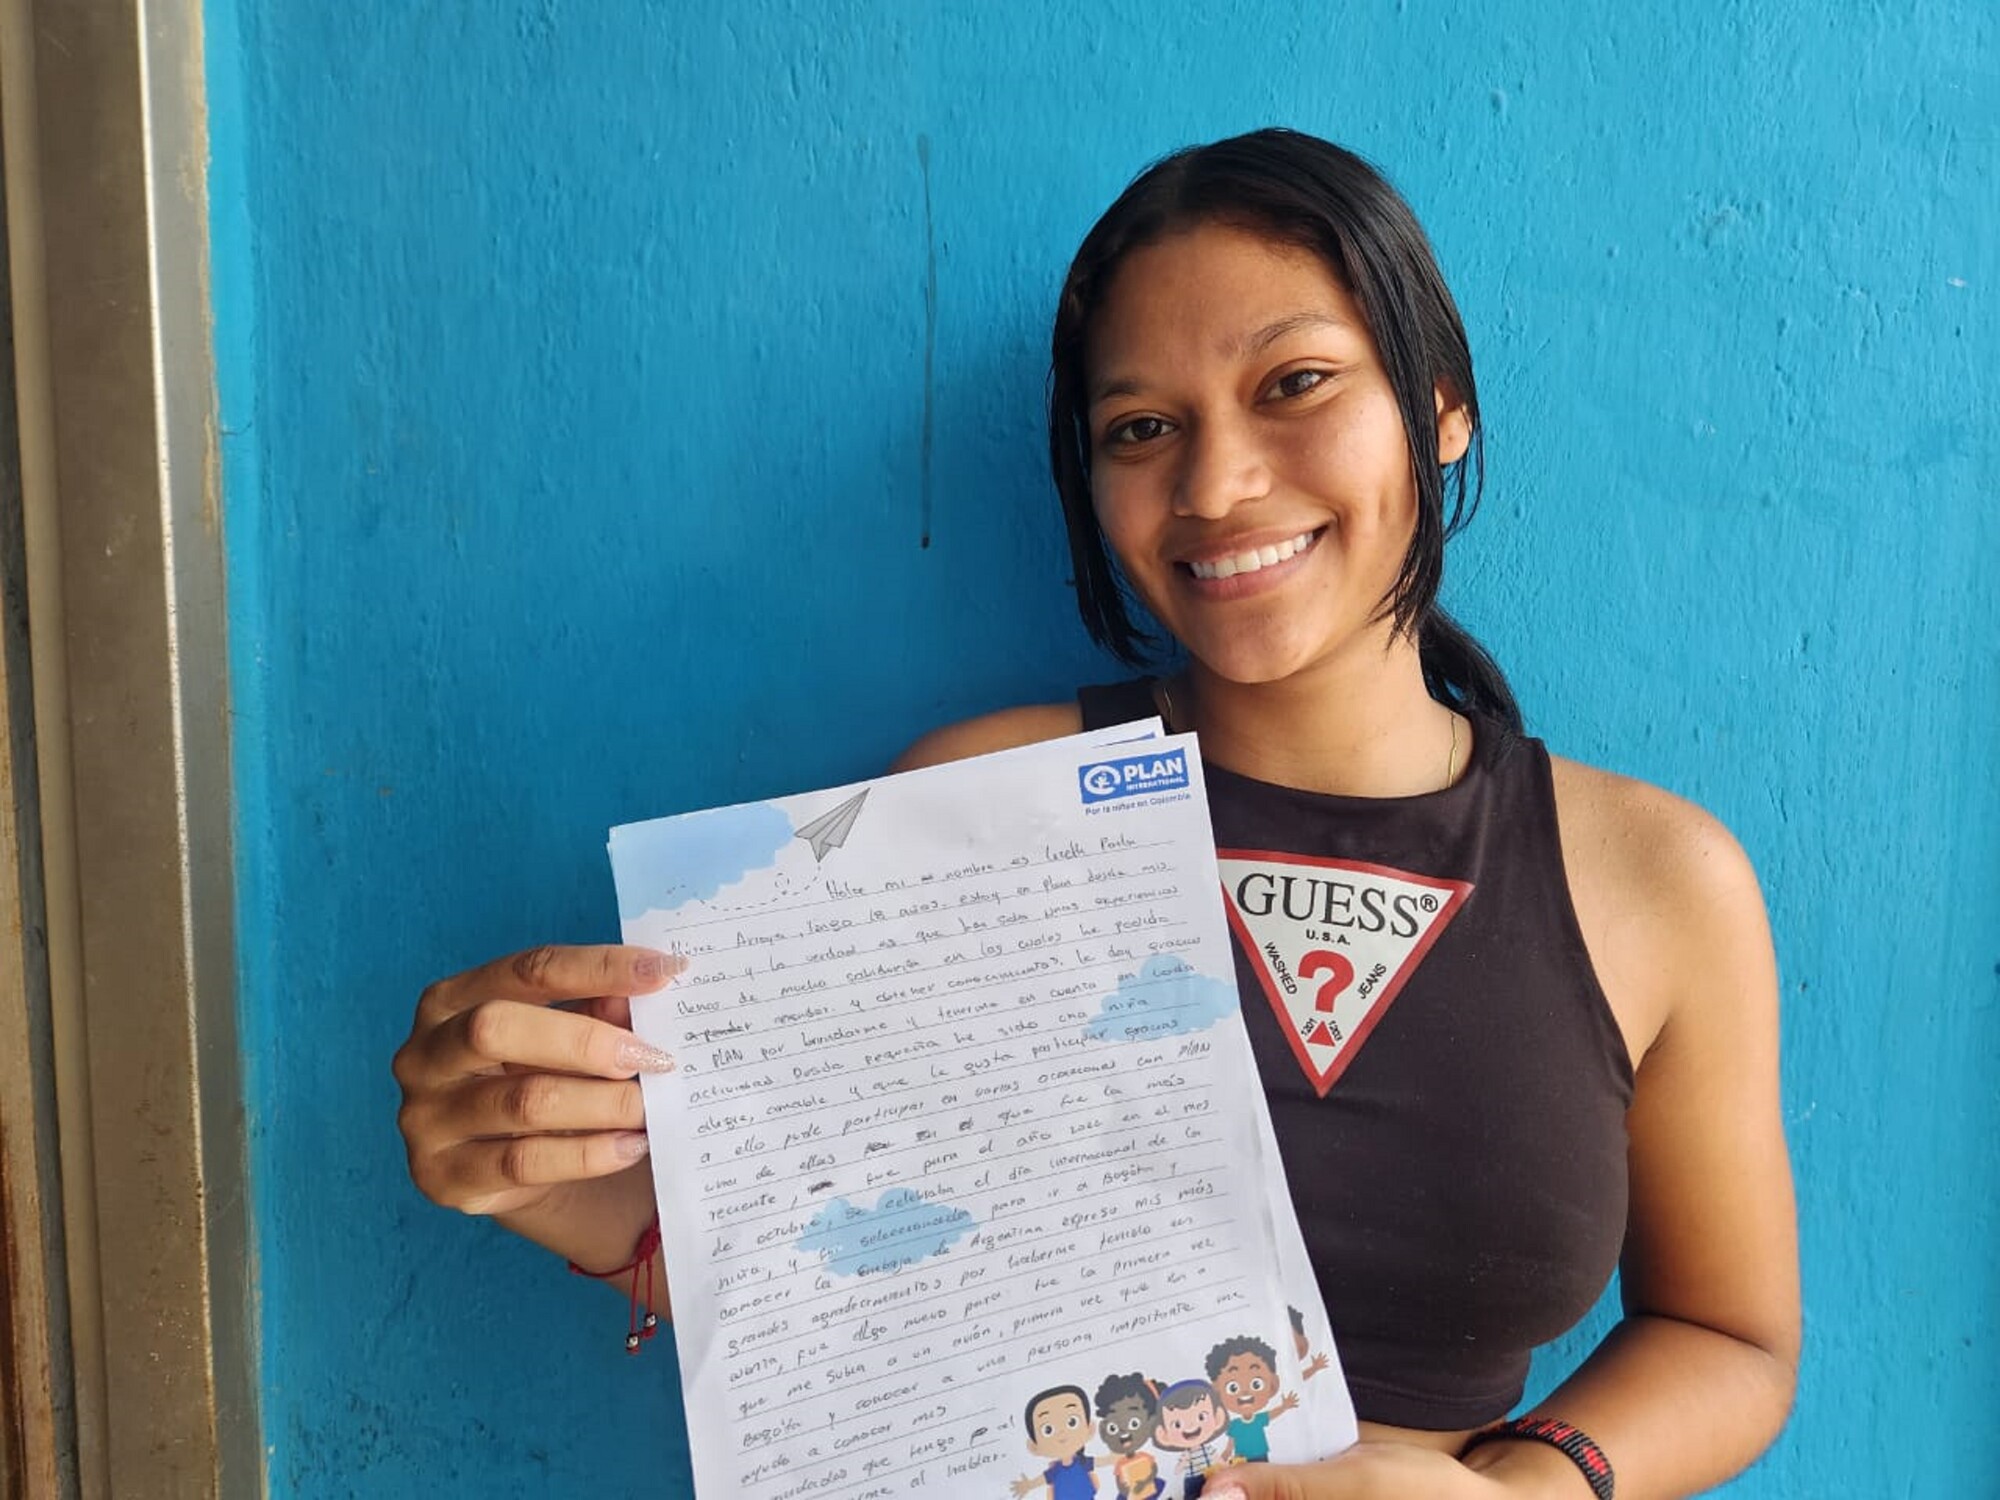 PLAN
INTERNATIONAL
Por la niñez en Colombia
Holaa mi nombre es Liceth Paola
Núñez Arroyo, tengo 18 años. estoy en Plan desde mis
años. y la verdad es que han sido unas experiencias
llenas de mucha sabiduría en las cuales he podido
aprender. y obtener conocimientos. le doy gracias
a PLAN por brindarme y tenerme en cuenta en cada
actividad. Desde pequeña he sido una niña
alegre, amable y que le gusta participar gracias
a ello pude participar en varias ocasiones con PLAN
una de ellas que fue la más
reciente, fue para el año 2022 en el mes
de octubre, se celebraba el día internacional de la
niña, y fui seleccionada para ir a Bogotá y
conocer la Embaja de Argentina expreso mis más
grandes agradecimientos por haberme tenido en
fue algo nuevo para fue la primera vez
que me subia a un avión, primera vez que iba a
Bogóta y conocer a una persona importante me
ayudo a conocer mis
que tengo al
al hablar.
GUESS®
U.S.A.
WASHED
?
JEANS